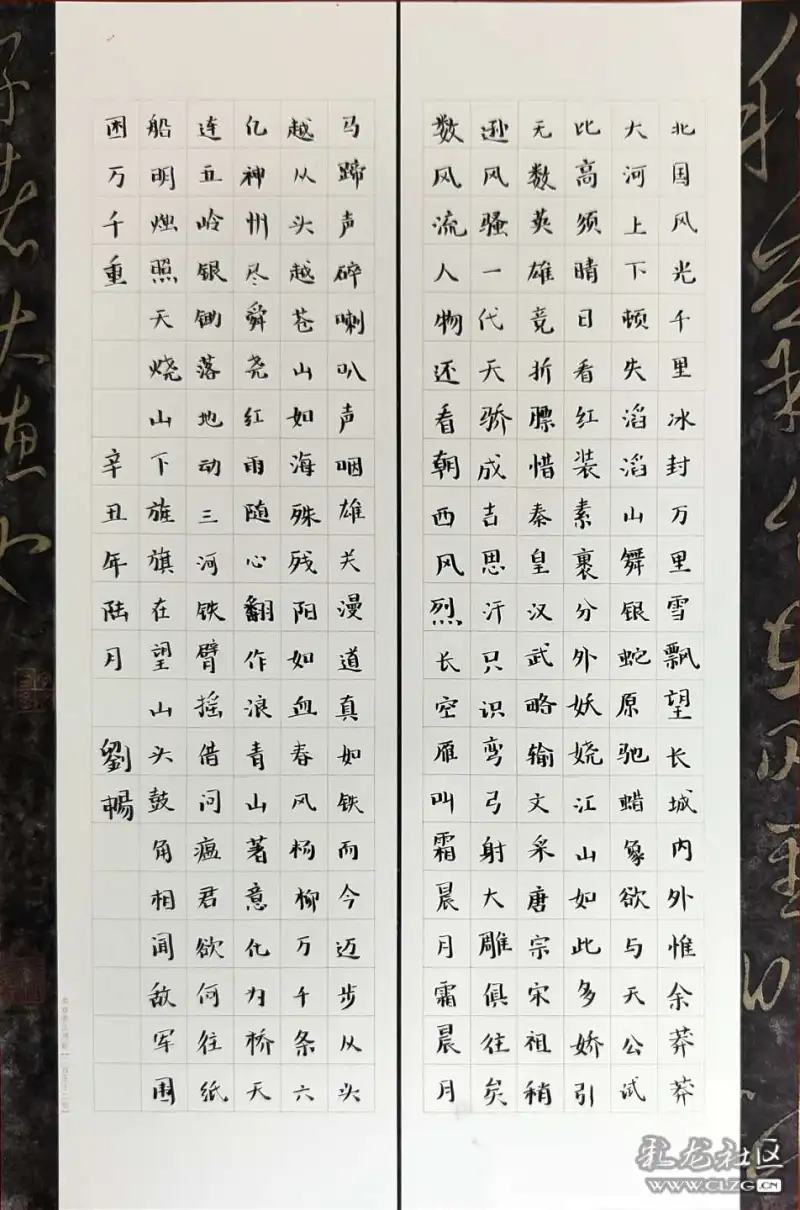 北国风光千里冰封万里雪飘望长城内外惟余莽莽
大河上下顿失滔滔山舞银蛇原驰蜡象欲与天公试
比高须晴日看红装素裹分外妖娆江山如此多娇引
无数英雄竞折膘惜秦皇汉武略输文采唐宗宋祖稍
逊风骚一代天骄成吉思汗只识弯弓射大雕俱往矣
数风流人物还看朝西风烈长空雁叫霜晨月霜晨月
马蹄声碎喇叭声咽雄关漫道真如铁而今迈步从头
越从头越苍山如海殊残阳如血春风杨柳万千条六
亿神州尽舜尧红雨随心翻作浪青山著意化为桥天
连五岭银锄落地动三河铁臂摇借问瘟君欲何往纸
船明烛照天烧山下旌旗在望山头鼓角相闻敌军围
困万千重 辛丑年陆月 劉暢
社区
WWW.CLZG.CN